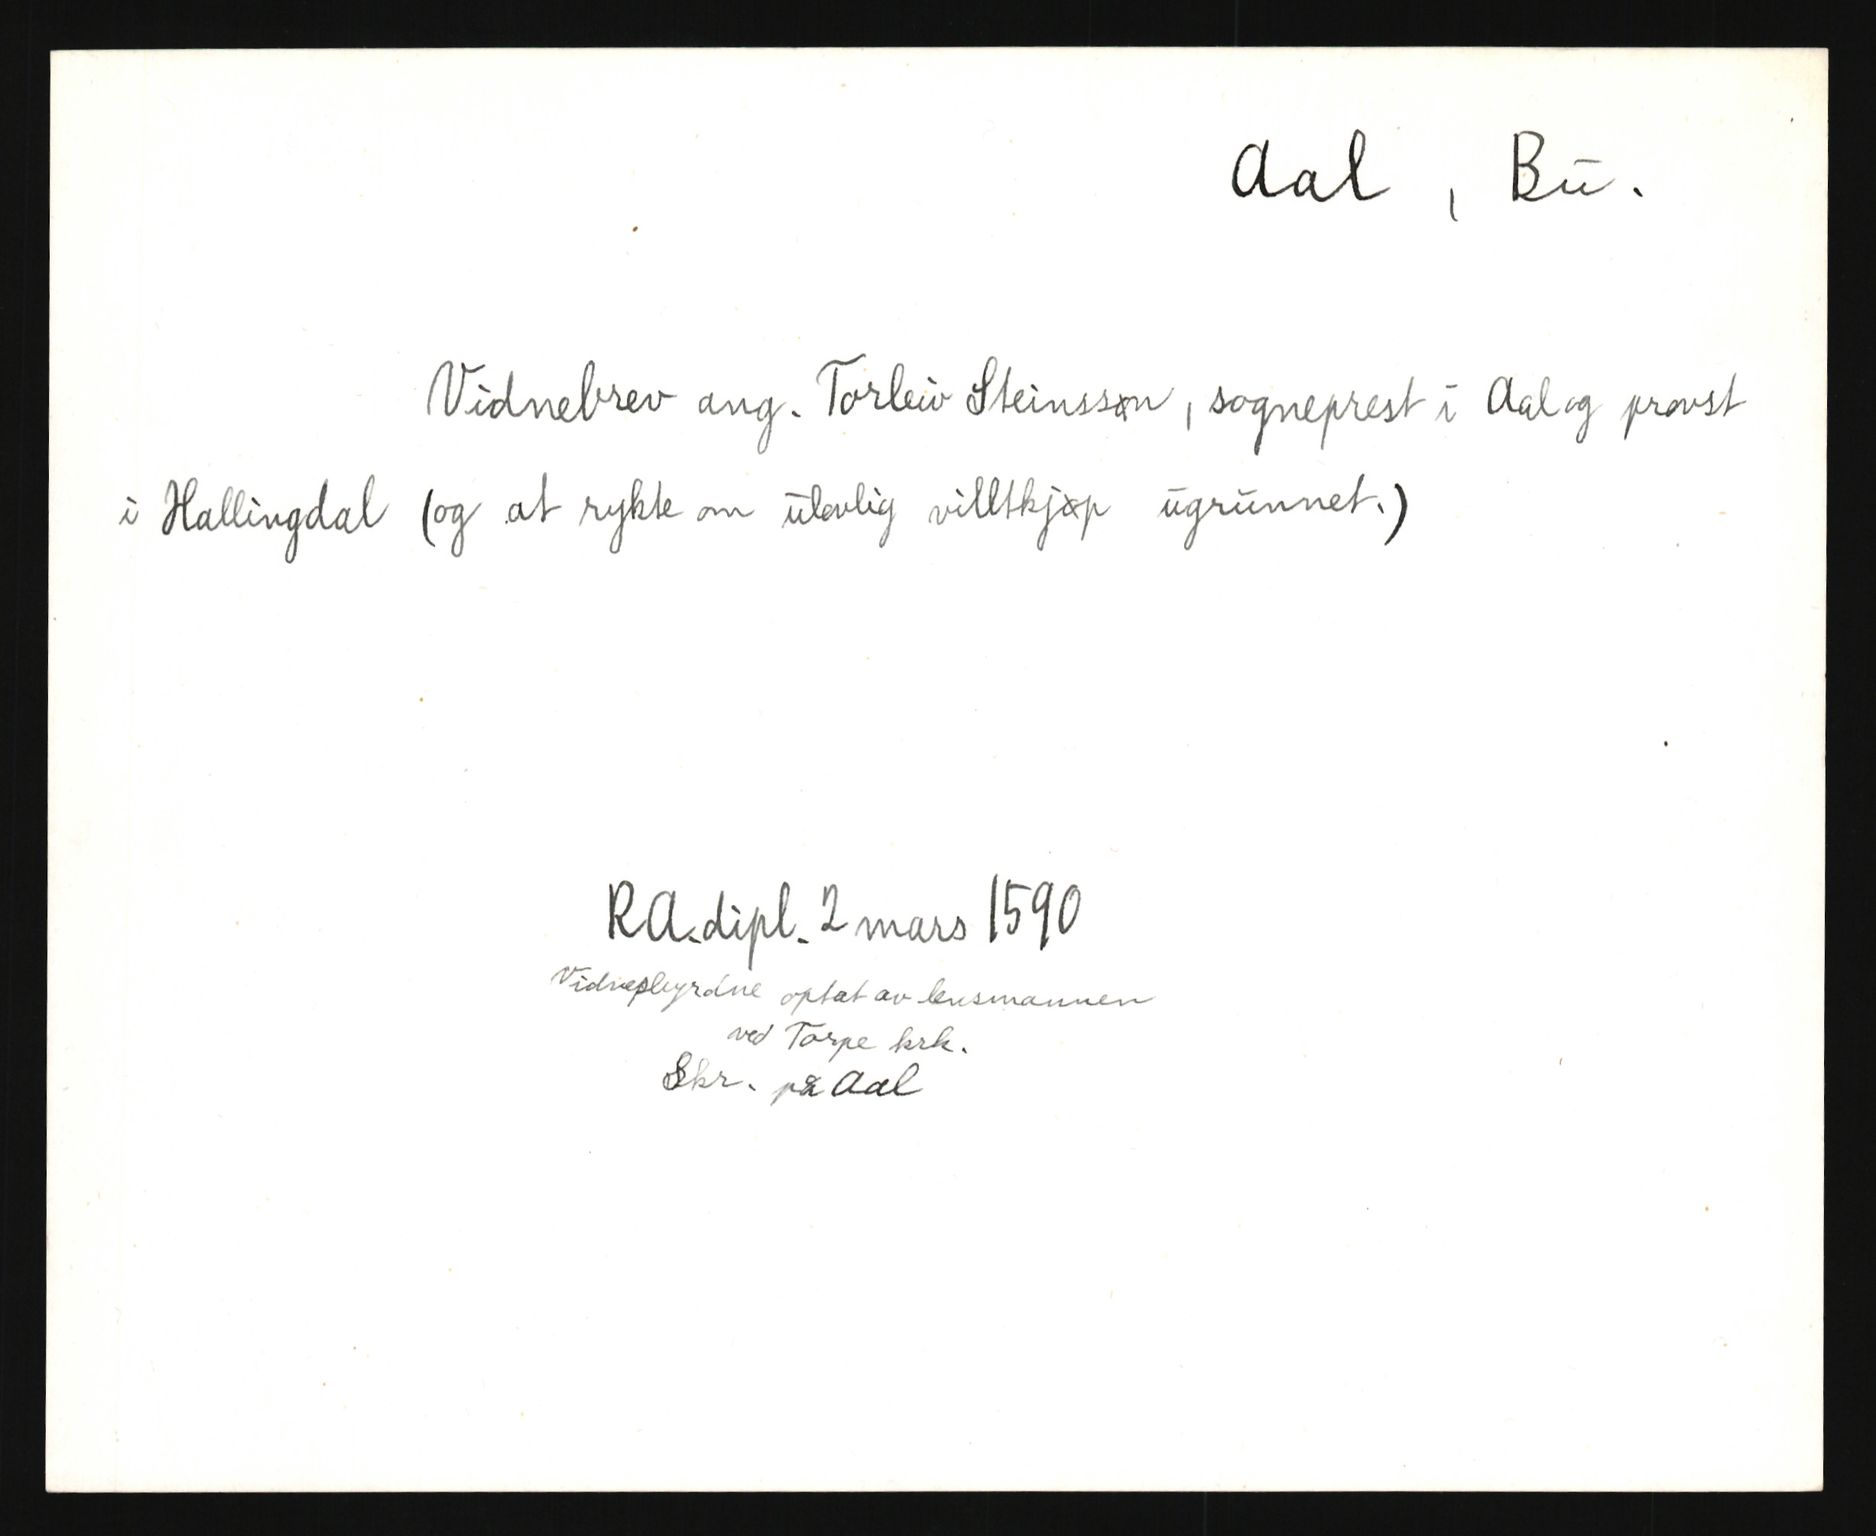 Aal, Bu.
Vidnebrev ang. Torleiv Steinssøn, sogneprest i Aal og provst
i Hallingdal (og at rykte om ulovlig villtkjøp ugrunnet.)
RA.dipl. 2 mars 1590
optat av lensmannen
ved Torpe krk.
Skr. på Aal